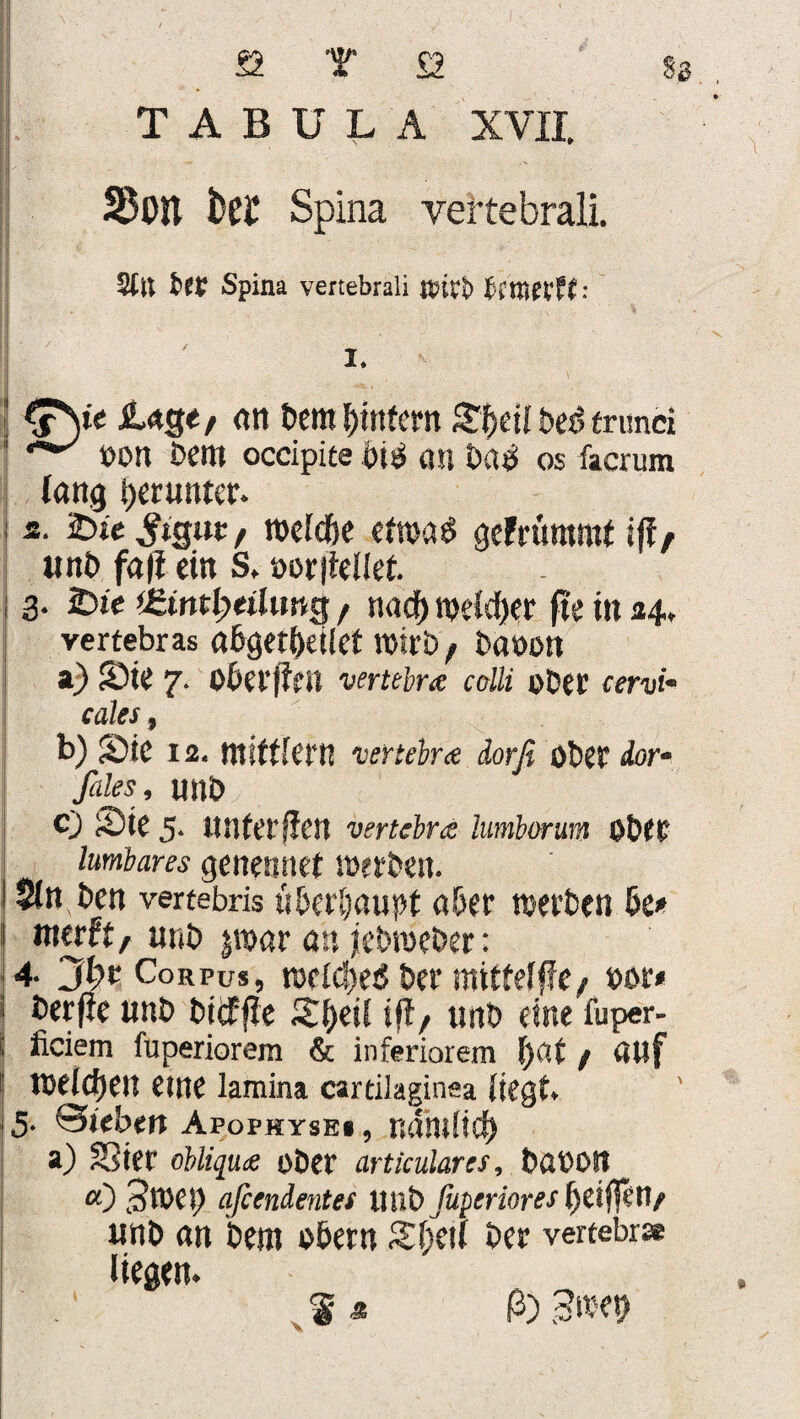 83
TABULA XVII.
Von der Spina vertebrali.
An der Spina vertebrali wird bemerkt:
1.
Die Lage, an dem hintern Theil des trunci
von dem occipite bis an das os sacrum
lang herunter.
2. Die Figur, welche etwas gekrümmt ist,
und fast ein S. vorstellet.
3. Die Eintheilung, nach welcher sie in 24.
vertebras abgetheilet wird, davon
a) Die 7. obersten vertebræ colli oder cervi-
cales,
b) Die 12. mittlern vertebræ dorsi oder dor-
sales, und
c) Die 5. untersten vertebræ lumborum oder
lumbares genennet werden.
An den vertebris überhaupt aber werden be-
merkt, und zwar an jedweder:
4. Ihr Corpus, welches der mittelste, vor-
derste und dickste Theil ist, und eine super-
ficiem superiorem & inferiorem hat, auf
welchen eine lamina cartilaginea liegt.
5. Sieben Apophyses, nämlich
a) Vier obliquæ oder articulares, davon
α) Zwey ascendentes und superiores heissen,
und an dem obern Theil der vertebræ
liegen.
F 2 β) Zwey